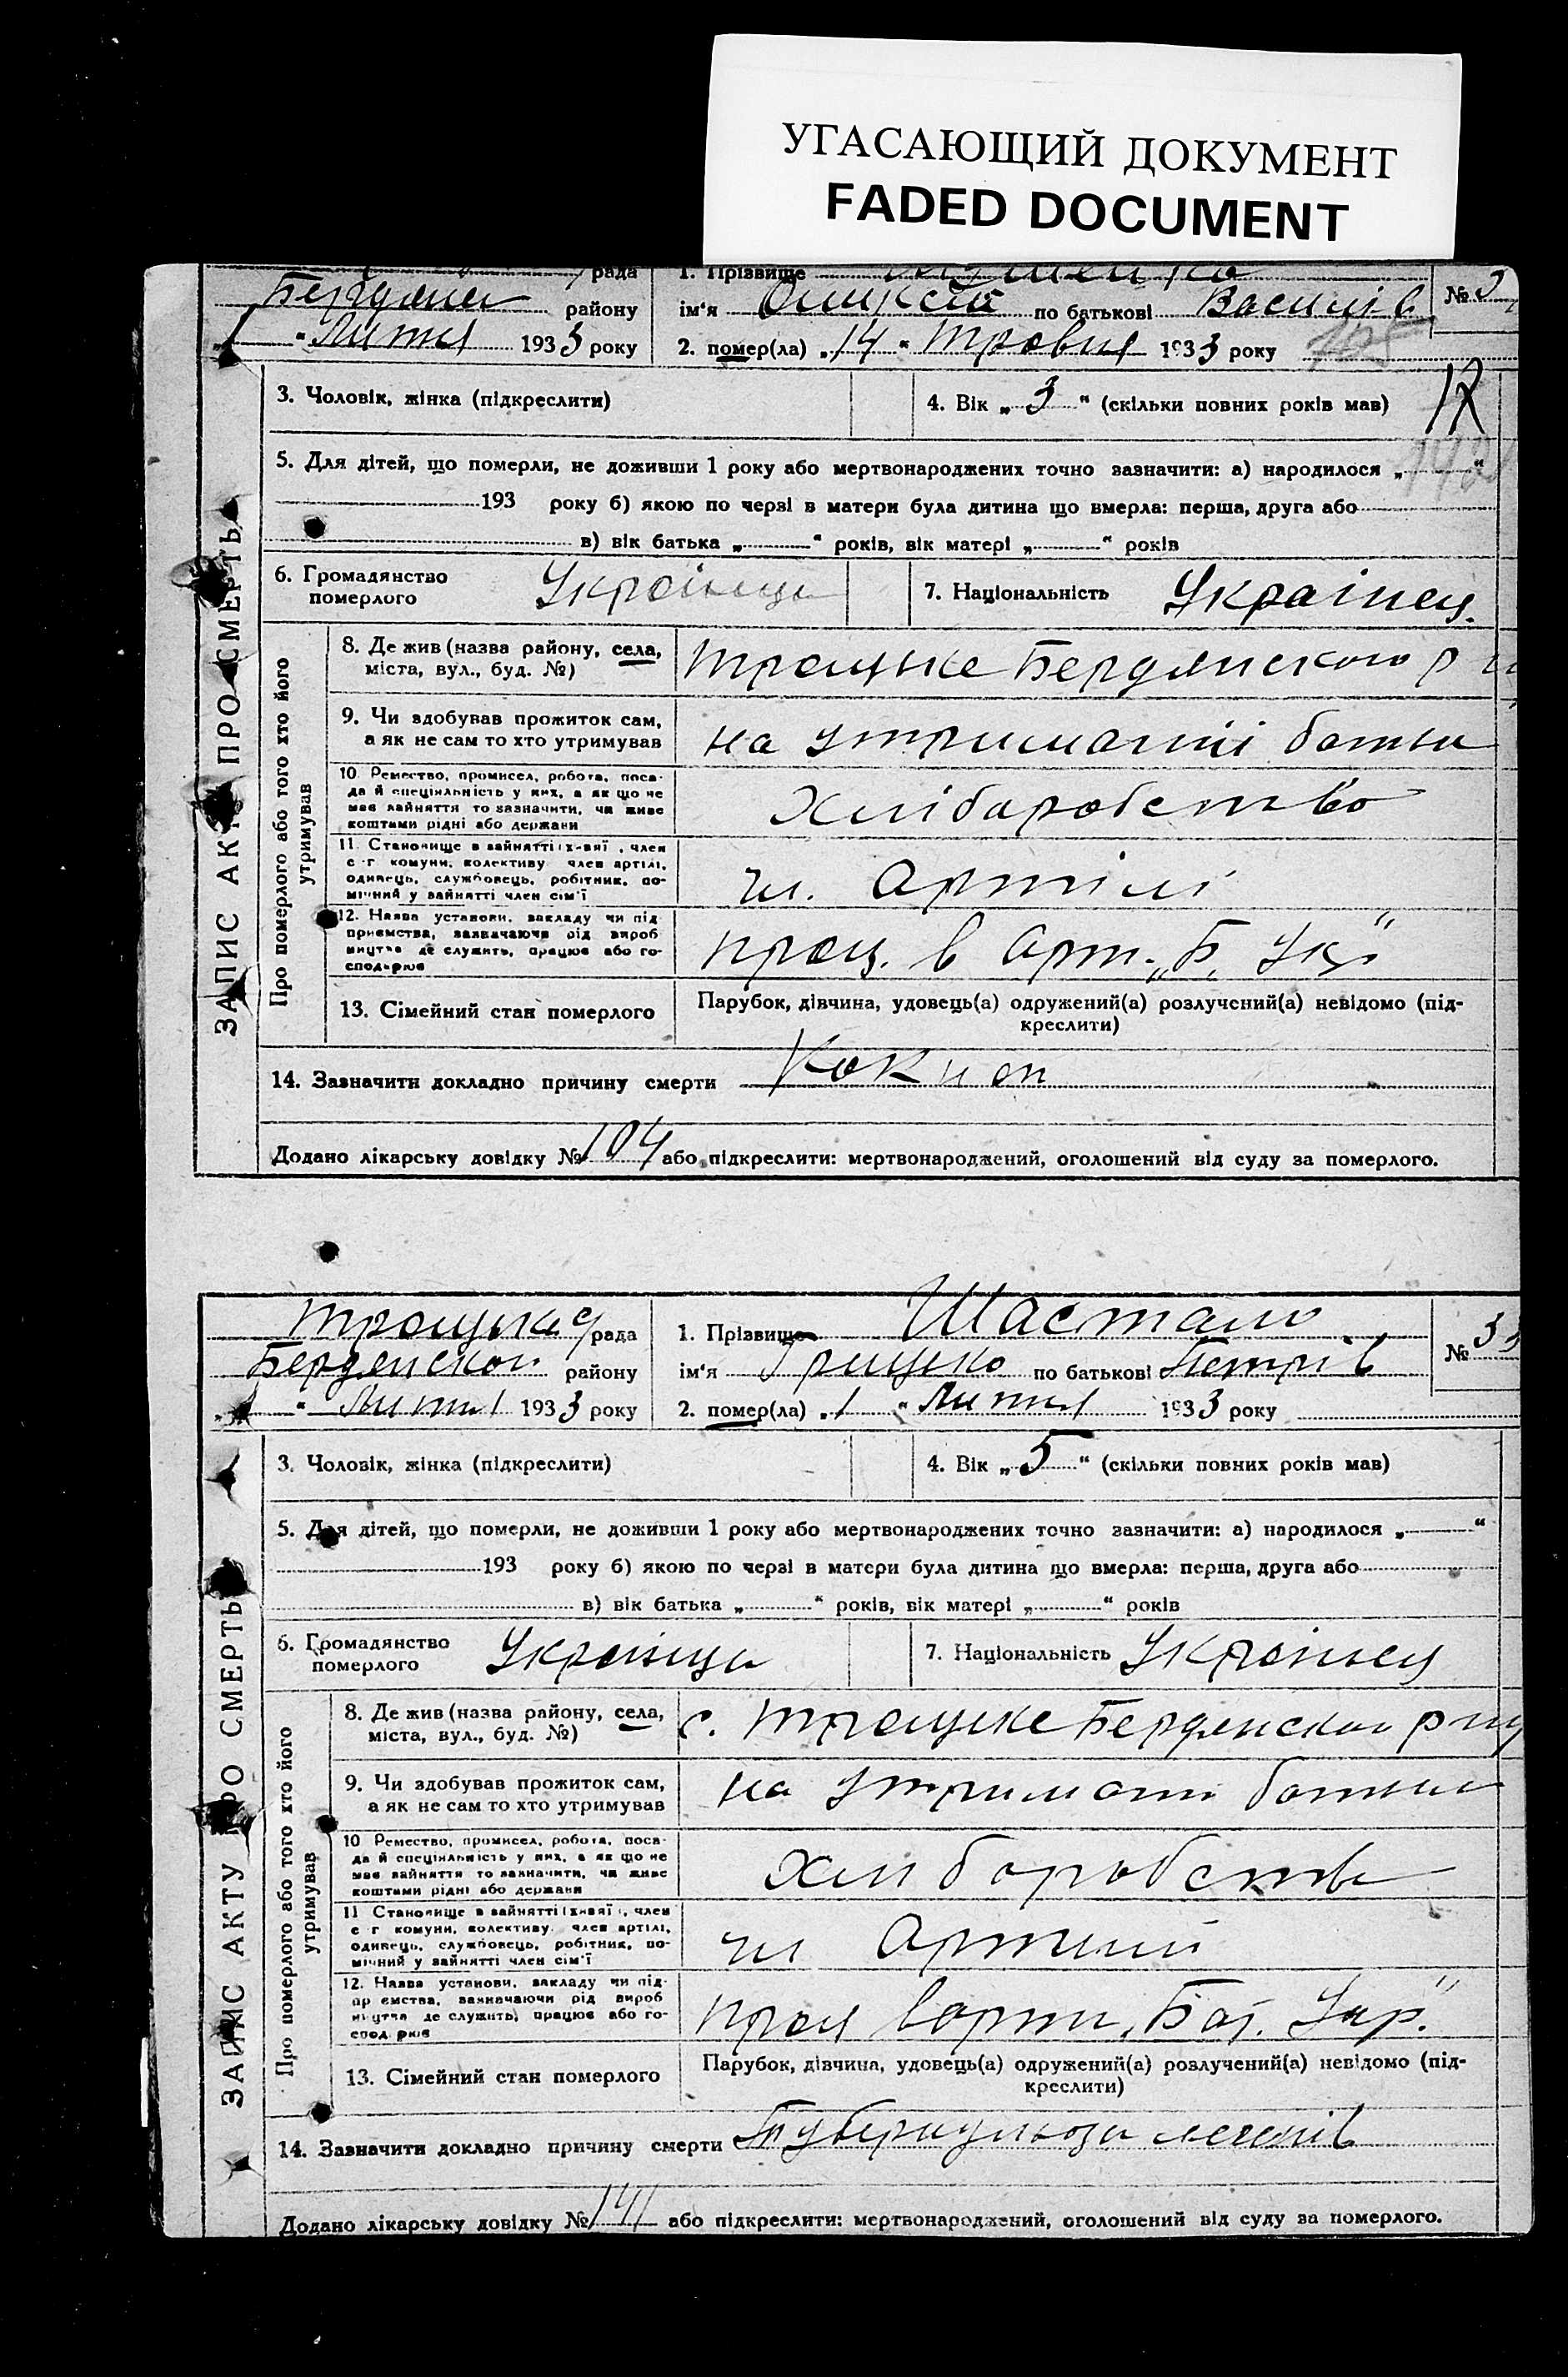 УГАСАЮЩИЙ ДОКУМЕНТ
FADED DOCUMENT
рада
1. Прізвище
№ 3
району
ім'я Оликсій по батькові Василів
1 " Липня 1933 року
2. помер(ла) „ 14 " Травня 1933 року
3. Чоловік, жінка (підкреслити)
4. Вік „ 3 " (скільки повних років мав)
5. Для дітей, що померли, не доживши 1 року або мертвонароджених точно зазначити: а) народилося „ "
193 року б) якою по черзі в матери була дитина що вмерла: перша, друга або
в) вік батька „ " років, вік матері „ " років
6. Громадянство
померлого
Украінци
7. Національність
Украінец.
ЗАПИС АКТУ ПРО СМЕРТЬ
Про померлого або того хто його
утримував
8. Де жив (назва району, села,
міста, вул., буд. №)
Троцьке Бердянского р
9. Чи здобував прожиток сам,
а як не сам то хто утримував
на утриманні батька
10. Ремество, промисел, робота, поса-
да й спеціяльність у них, а як що не
має зайняття то зазначити, чи живе
коштами рідні або держави
Хліборобство
11. Становище в зайнятті , член
с-г комуни, колективу член артілі,
одинець, службовець, робітник, по-
мічний у зайнятті член сім'ї
чл. Артілі
12. Назва установи, закладу чи під
приємства, зазначаючи рід вироб
ництва де служить, працює або го-
сподарює
прац. в Арт. „Б. Ук."
13. Сімейний стан померлого
Парубок, дівчина, удовець(а) одружений(а) розлучений(а) невідомо (під-
креслити)
14. Зазначити докладно причину смерти
Додано лікарську довідку № 104 або підкреслити: мертвонароджений, оголошений від суду за померлого.
Троцька рада
1. Прізвище Шастало
№ 33
Бердянского району
ім'я Грицько по батькові Петрів
" Липня 1933 року
2. помер(ла) „ 1 " Липня 1933 року
3. Чоловік, жінка (підкреслити)
4. Вік „ 5 " (скільки повних років мав)
5. Для дітей, що померли, не доживши 1 року або мертвонароджених точно зазначити: а) народилося „ "
193 року б) якою по черзі в матери була дитина що вмерла: перша, друга або
в) вік батька „ " років, вік матері „ " років
6. Громадянство
померлого
Украінци
7. Національність
Украінец
ЗАПИС АКТУ ПРО СМЕРТЬ
Про померлого або того хто його
утримував
8. Де жив (назва району, села,
міста, вул., буд. №)
с. Троцьке Бердянского р
9. Чи здобував прожиток сам,
а як не сам то хто утримував
на утримані батька
10 Ремество, промисел, робота, поса-
да й спеціяльність у них, а як що не
має зайняття то зазначити, чи живе
коштами рідні або держави
Хліборобство
11 Становище в зайнятті , член
с-г комуни, колективу член артілі,
одинець, службовець, робітник, по-
мічний у зайнятті член сім'ї
чл Артілі
12. Назва установи, закладу чи під-
приємства, зазначаючи рід вироб
ництва де служить, працює або го-
сподарює
прац в арти „Баг. Укр."
13. Сімейний стан померлого
Парубок, дівчина, удовець(а) одружений(а) розлучений(а) невідомо (під-
креслити)
14. Зазначити докладно причину смерти Туберкульоза легенів
Додано лікарську довідку № 141 або підкреслити: мертвонароджений, оголошений від суду за померлого.